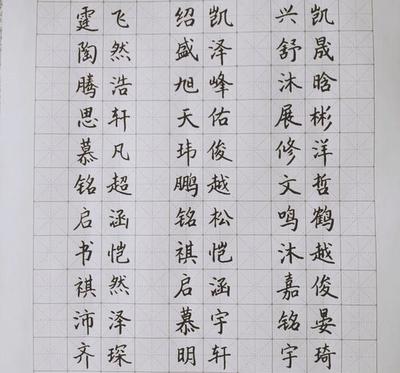 霆飞 绍凯 兴凯
陶然 盛泽 舒晟
腾浩 旭峰 沐晗
思轩 天佑 展彬
慕凡 玮俊 修洋
铭超 鹏越 文哲
启涵 铭松 鸣鹤
书恺 祺恺 沐越
祺然 启涵 嘉俊
沛泽 慕宇 铭晏
齐琛 明轩 宇琦